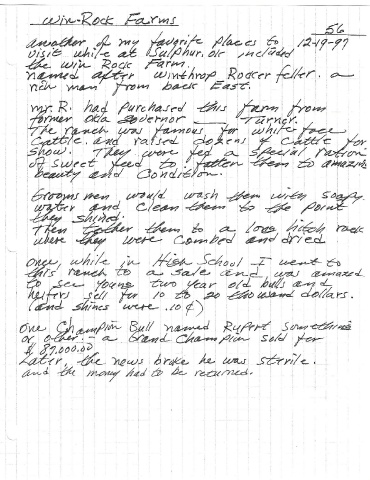 Win-Rock Farms
56
another of my favorite places to 12-19-97
visit while at Sulphur. ok included
the Win Rock Farm.
named after Winthrop Rocker feller. a
rich man from back East.
mr. R. had purchased this farm from
former Okla Governor ___ Turner.
The ranch was famous for white face
Cattle. and raised dozens of Cattle for
Show. They were fed a special ration
of sweet feed to fatten them to amazing
beauty and Condition.
Grooms men would wash them with soapy
water and Clean them to the point
they shined.
Then tether them to a long hitch rack
where they were Combed and dried
Once, while in High School I went to
this ranch to a sale and, was amazed
to see young two year old bulls and
heifers sell for 10 to 20 thousand dollars.
(and shines were .10¢)
One Champion Bull named Rupert Something
or other. - a Grand Champion sold for
$ 87.000.00
Later, the news broke he was sterile.
and the money had to be returned.